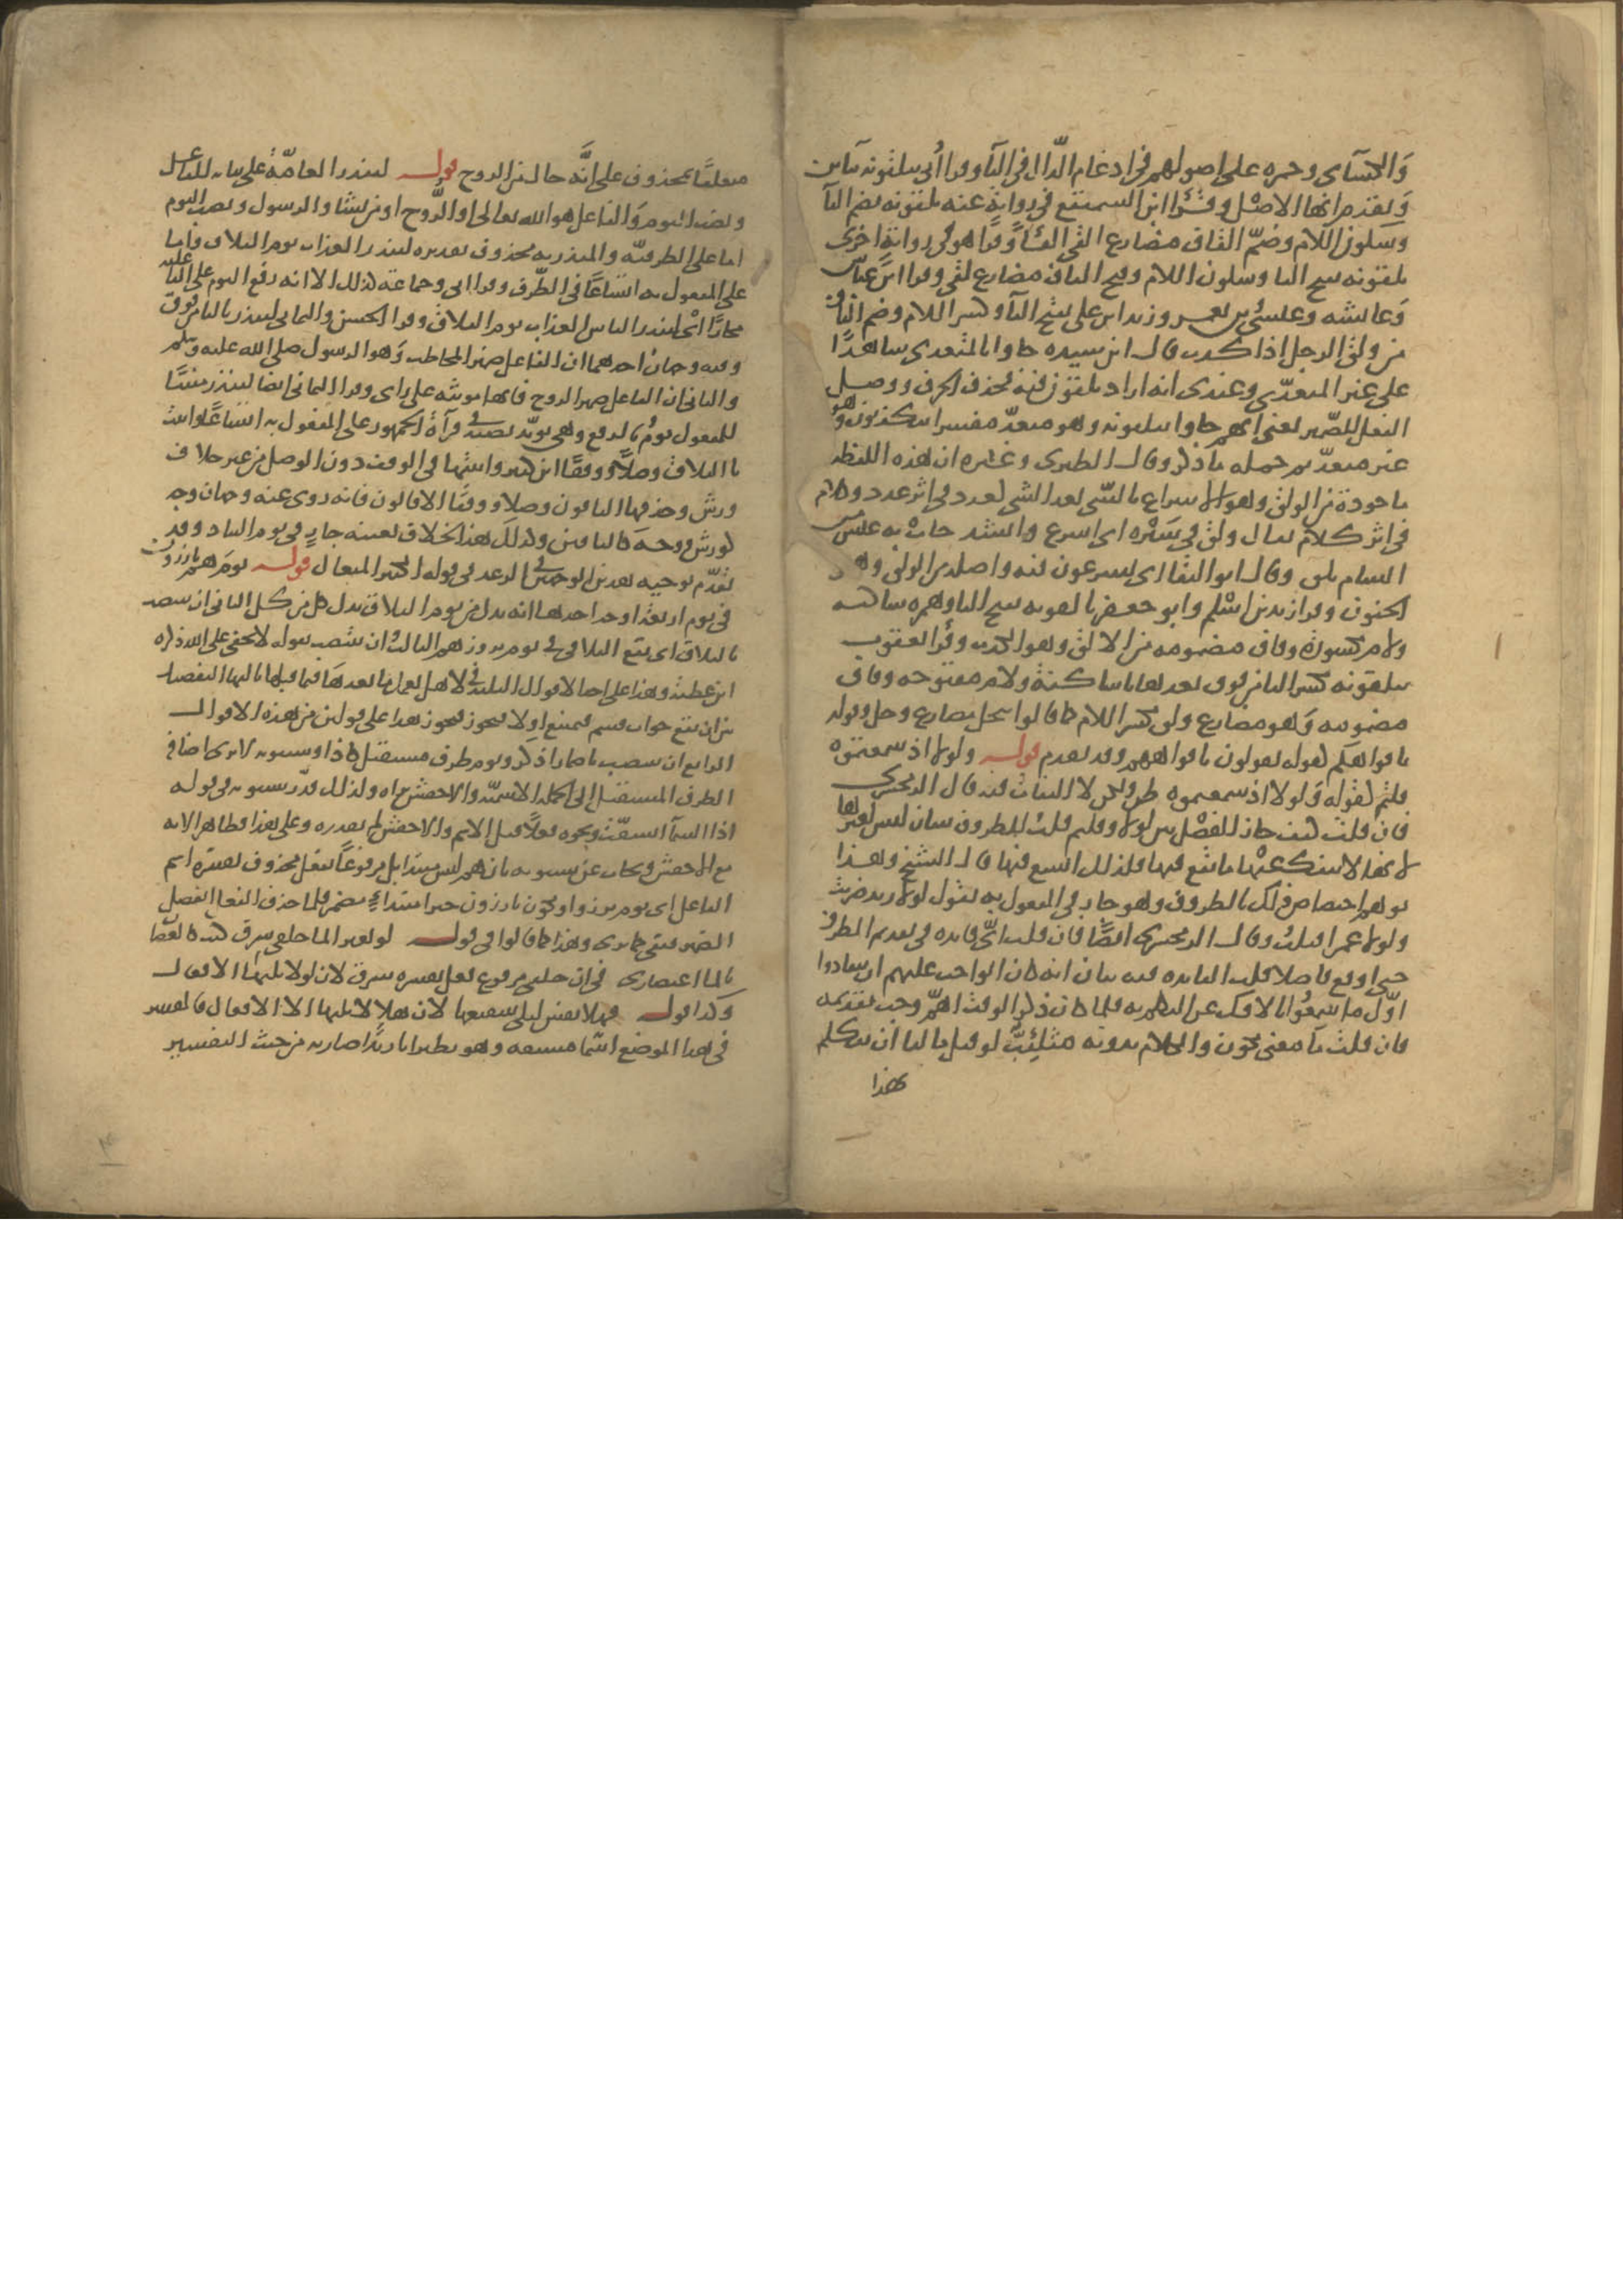 وَالكسآى وحمزه على اصولهم فى ادغام الذّال فى التآ وقرا أُبى تتلقونه بتآين
وَتقدم انها الاصْل وقَرَا ابن السميفع فى روايةٍ عنه تلقونه بضم التآ
وسكون اللام وضمّ القاف مضارع القى القآءً وقرا هو فى رواية اخرى
تلقونه بفتح التا وسكون اللام وفتح القاف مضارع لقى وقرا ابن عبّاس
وَعايشه وعيسى بن يعمر وزيد ابن على بفتح التآ وكسر اللام وضم القاف
من ولق الرجل اذا كذب قال ابن سيده جاوا بالمتعدى شاهدًا
على غير المتعدّى وعندى انه اراد تلقون فيه فحذف الحرف ووصل
الفعل للضّمير يعنى انهم جاوا بتلقونه وهو متعدّ مفسرا بتكذبون وهو
غير متعدّ ثم حمله ما ذكر وقال الطبرى وغيره ان هذه اللفظه
ماخودة من الولق وهو الاسراع بالشى بعد الشى كعدد فى اثر عدد وكلام
فى اثر كلام يقال ولق فى سَيْره اى اسرع وانشد جات به عنس
الشام تلق وقال ابو البقا اى يسرعون فيه واصله من الولق وهو
الجنون وقرا زيد بن اسْلم وابو جعفر تالقونه بفتح التا وهمزه ساكنه
ولام مكسورة وقاف مضمومه من الالق وهو الكذب وقَرا يعقوب
تيلقونه بكسر التا من فوق بعدها يا ساكنة ولام مفتوحه وقاف
مضمومه وَهو مضارع ولق بكسر اللام كما قالوا تيجل مضارع وجل وقوله
بافواهكم كقوله يقولون بافواههم وقد تقدم قوله ولولا اذ سمعتموه
قلتم كقوله وَلولا اذ سمعتموه ظن ولكن لا التفات فيه قال الزمخشرى
فان قلت كيف جاز الفصْل بين لولا وقلتم قلت للظروف شان ليس لغيرها
لانها لا ينفك عنْها ما يقع فيها فلذلك اتسع فيها قال الشيخ وهذا
يوهم اختصاص ذلك بالظروف وهو جار فى المفعول به تقول لولا زيدا ضربت
ولولا عمرا قتلت وقال الزمخشرى ايضًا فان قلت اىّ فايده فى تقديم الظرف
حتى اوقع فاصلا قلت الفايده فيه بيان انه كان الواجب عليهم ان يتفادوا
اوّل ما سَمعُوا بالافك عن التكلم به فلما كان ذكر الوقت اهمّ وجب تقديمه
فان قلت ما معنى يكون والكلام بدونه متلئِبٌّ لو قيل ما لنا ان نتكلم
بهذا
متعلقًا بمحذوف على انَّه حال من الروح قوله لينذر العامّةُ على بنايه للفاعل
ونصب اليوم وَالفاعل هو الله تعالى او الرّوح او من يشا والرسول ونصب اليوم
اما على الظرفيّه والمنذر به محذوف تقديره لينذر العذاب يوم التلاق واما
على المفعول به اتساعًا فى الظّرف وقرا ابى وجماعة كذلك الا انه رفع اليوم على الفاعليه
مجازًا اى لينذر الناس العذاب يوم التلاق وقرا الحسن واليمانى لتنذر بالتا من فوق
وفيه وجهان احدهما ان الفاعل ضمير المخاطب وَهو الرسول صلى الله عليه وسلم
والثانى ان الفاعل ضمير الروح فانها مونثه على راى وقرا اليمانى ايضا لينذر مبنيًا
للمفعول يومُ بالرفع وهى تويّد نصبَهُ فى قرآة الجمهور على المفعول به اتساعًا واثبت
يا التلاق وصلاً ووقفًا ابن كثير واثبتها فى الوقف دون الوصل من غير خلاف
ورش وحذفها الباقون وصلا ووقفا الا قالون فانه روى عنه وجهان وجه
كورش ووجه كالباقين وكذلك هذا الخلاف بعينه جارٍ فى يوم التناد وقد
تقدّم توجيه هذين الوجهين فى الرعد فى قوله الكبير المتعال قوله يوم هم بارزون
فى يوم اربعة اوجه احدها انه بدل من يوم التلاق بدل كل من كل الثانى ان ينتصب
بالتلاق اى يقع التلاقى فى يوم بروزهم الثالث ان ينتصب بقوله لا يخفى على الله ذكره
ابن عطية وهذا على احد الاقوال الثلثه فى لا هل يعمل ما بعدها فيما قبلها ثالثها التفصيل
بين ان يقع جواب قسم فيمتنع اولا فيجوز فيجوز هذا على قولين من هذه الاقوال
الرابع ان ينتصب باضمار اذكر ويوم ظرف مستقبل كاذا وسيبويه لا يرى اضافه
الظرف المستقبل الى الجمله الاسميّه والاخفش يراه ولذلك قدّر سيبويه فى قوله
اذا السمآ انشقّت ونحوه فعلاً قبل الاسم والاخفش لم يقدره وعلى هذا فظاهر الايه
مع الاخفش ويجاب عن سيبويه بان هم ليس مبتدا بل مرفوعًا بفعل محذوف يفسّره اسم
الفاعل اى يوم برزوا ويكون بارزون خبر ابتداءٍ مضمر فلما حذف الفعل انفصل
الضمير فبقى كما ترى وهذا كما قالوا فى قوله لو بغير الما حلقى شرق كنت كالغصان
بالما اعتصارى فى ان حلقى مرفوع بفعل يفسره شرق لان لو لا يليها الا الافعال
وكذا قوله فهلا نفس ليلى شفيعها لان هلا لا يليها الا الافعال فالمفسر
فى هذا الموضع اسْما مشبعه وهو نظير انا زيدًا ضاربه من حيث التفسير